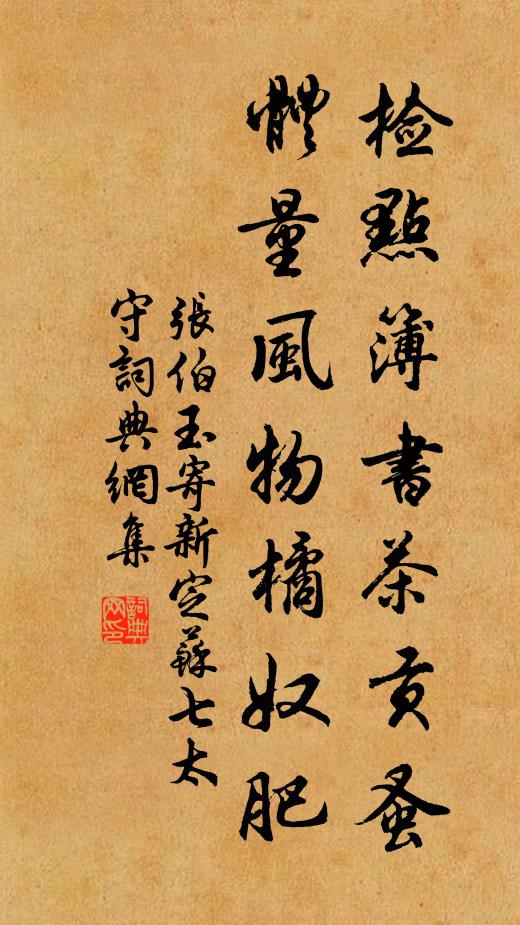 检點簿書茶貢蚤
體量風物橘奴肥
張伯玉寄新定蘇七太
守詞典網集
詞典
网印